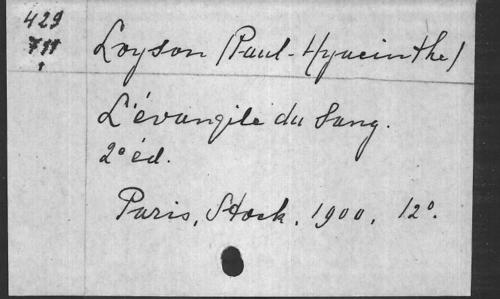 429
Loyson (Paul-Hyacinthe)
L'évangile du Sang.
2° éd.
Paris, Stock, 1900, 12°.